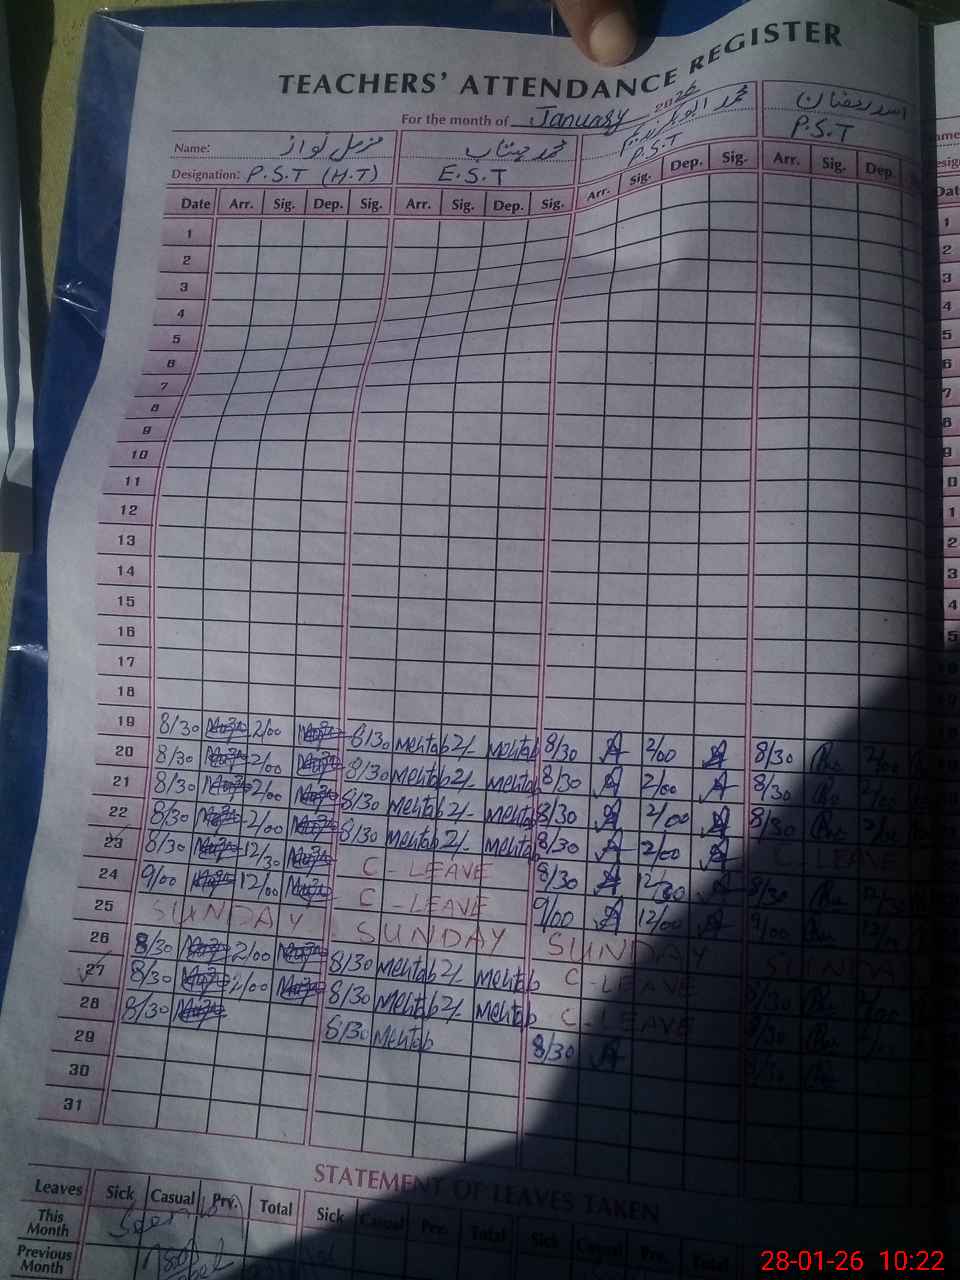 TEACHERS' ATTENDANCE REGISTER
For the month of January 2026
Name: مزمل نواز محمد مہتاب محمد ابوبکر اسد رمضان
Designation: P.S.T (H.T) E.S.T P.S.T P.S.T
Date Arr. Sig. Dep. Sig. Arr. Sig. Dep. Sig. Arr. Sig. Dep. Sig. Arr. Sig. Dep.
1
2
3
4
5
6
7
8
9
10
11
12
13
14
15
16
17
18
19 8/30 2/00 8/30 Mehtab 2/- Mehtab 8/30 A 2/00 A 8/30 2/00
20 8/30 2/00 8/30 Mehtab 2/- Mehtab 8/30 A 2/00 A 8/30 2/00
21 8/30 2/00 8/30 Mehtab 2/- Mehtab 8/30 A 2/00 A 8/30
22 8/30 2/00 8/30 Mehtab 2/- Mehtab 8/30 A 2/00 A C-LEAVE
23 8/30 12/30 C-LEAVE 8/30 A 12/30 A 8/30 12/30
24 9/00 12/00 C-LEAVE 9/00 A 12/00 A 9/00 12/00
25 SUNDAY SUNDAY SUNDAY SUNDAY
26 8/30 2/00 8/30 Mehtab 2/- Mehtab C-LEAVE 8/30
27 8/30 2/00 8/30 Mehtab 2/- Mehtab C-LEAVE 8/30
28 8/30 8/30 Mehtab 8/30 A 8/30
29
30
31
STATEMENT OF LEAVES TAKEN
Leaves Sick Casual Prv. Total Sick Casual Prv. Total Sick Casual Prv. Total
This Month
Previous Month
28-01-26 10:22